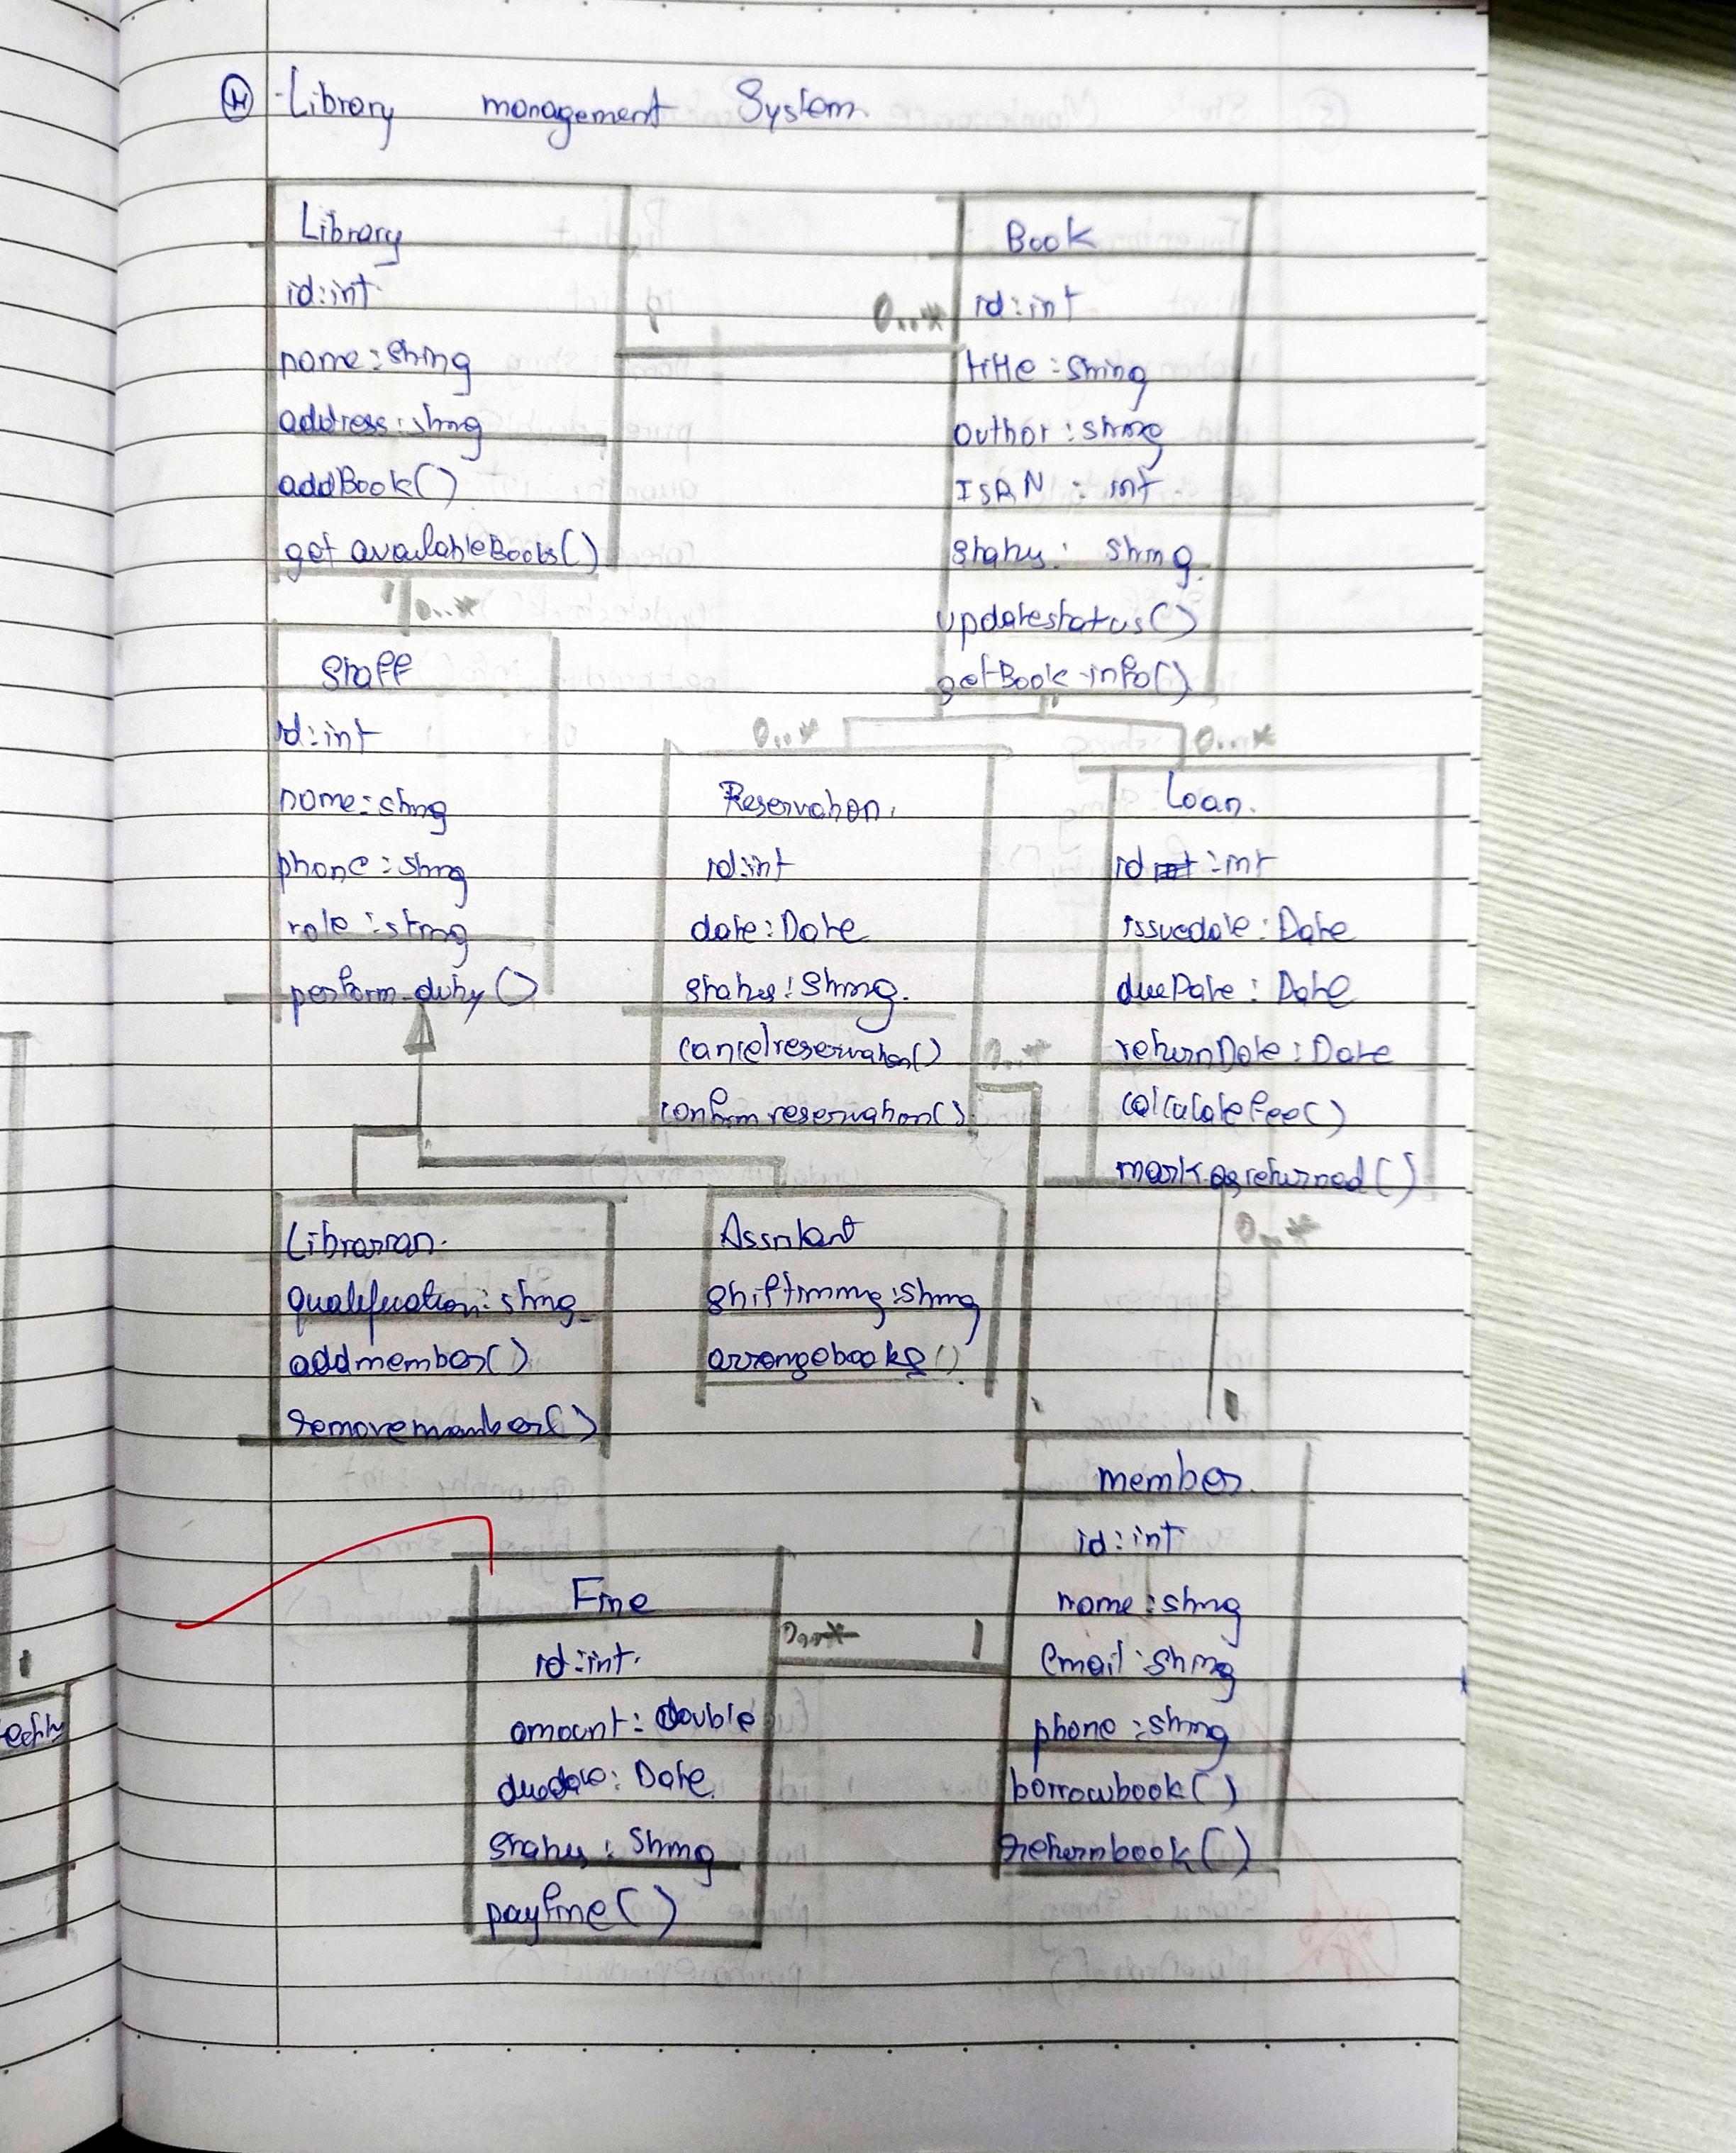 4 Library management System
Library
id:int
name:String
address:String
addBook()
getavailableBooks()
1
0...*
Book
id:int
title:String
author:String
ISBN : int
status: String
updatestatus()
getBook-info()
1
0...*
Staff
id:int
name:String
phone:String
role:String
perform-duty()
0...*
0...*
Reservation
id:int
date:Date
status:String
cancelreservation()
confirmreservation()
0...*
Loan.
id:int
issuedate:Date
duedate:Date
returnDate:Date
calculatefee()
markasreturned()
0...*
Librarian.
qualification:String
addmember()
removemember()
Assistant
shiftiming:String
arrangebooks()
1
1
member
id:int
name:String
email:String
phone:String
borrowbook()
returnbook()
0...*
1
Fine
id:int
amount:double
duedate:Date
status:String
payfine()